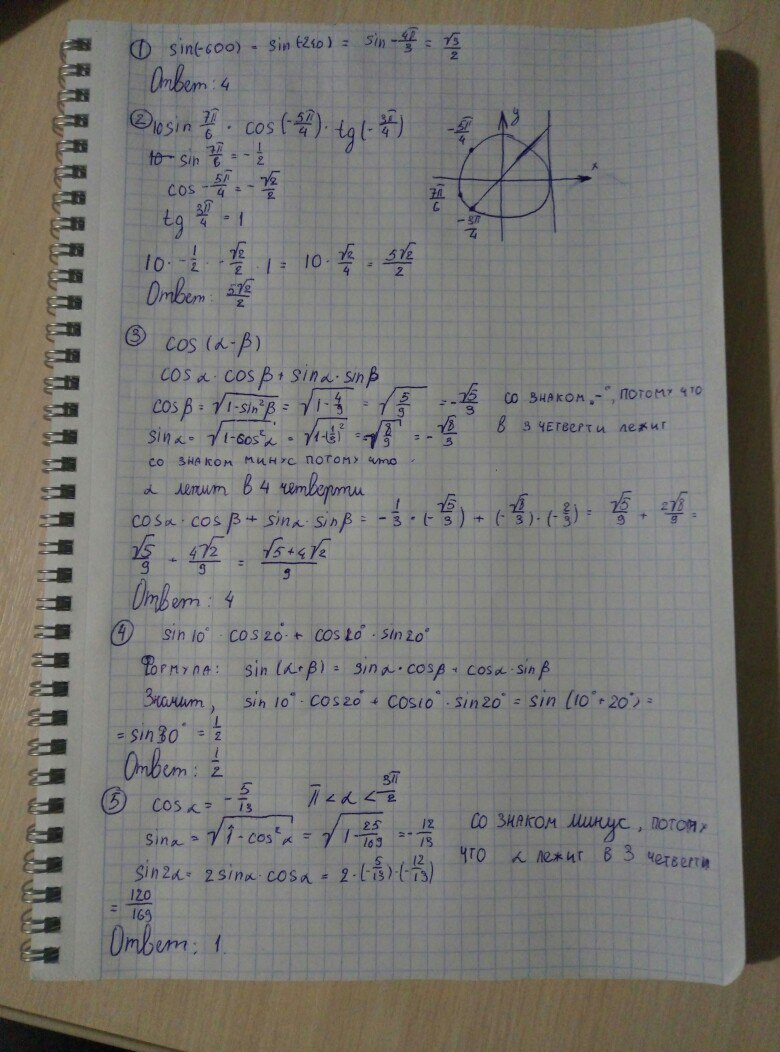 ① sin(-600) = sin(-240) = sin -4π/3 = √3/2
Ответ: 4
② 10 sin 7π/6 · cos(-5π/4) · tg(-3π/4)
10 sin 7π/6 = -1/2
cos -5π/4 = -√2/2
tg 3π/4 = 1
y
x
-5π/4
7π/6
-3π/4
10 · -1/2 · -√2/2 · 1 = 10 · √2/4 = 5√2/2
Ответ: 5√2/2
③ cos(α-β)
cosα · cosβ + sinα · sinβ
cosβ = √(1-sin²β) = √(1-4/9) = √(5/9) = -√5/3 со знаком „-", потому что
в 3 четверти лежит
sinα = √(1-cos²α) = √(1-(1/3)²) = √(8/9) = -√8/3
со знаком минус потому что
α лежит в 4 четверти
cosα · cosβ + sinα · sinβ = -1/3 · (-√5/3) + (-√8/3) · (-2/3) = √5/9 + 2√8/9 =
√5/9 + 4√2/9 = (√5+4√2)/9
Ответ: 4
④ sin10° · cos20° + cos10° · sin20°
Формула: sin(α+β) = sinα · cosβ + cosα · sinβ
Значит, sin10° · cos20° + cos10° · sin20° = sin(10°+20°) =
= sin30° = 1/2
Ответ: 1/2
⑤ cosα = -5/13 π < α < 3π/2
sinα = √(1-cos²α) = √(1-25/169) = -12/13 со знаком минус, потому
что α лежит в 3 четверти
sin2α = 2sinα · cosα = 2 · (-5/13) · (-12/13)
= 120/169
Ответ: 1.